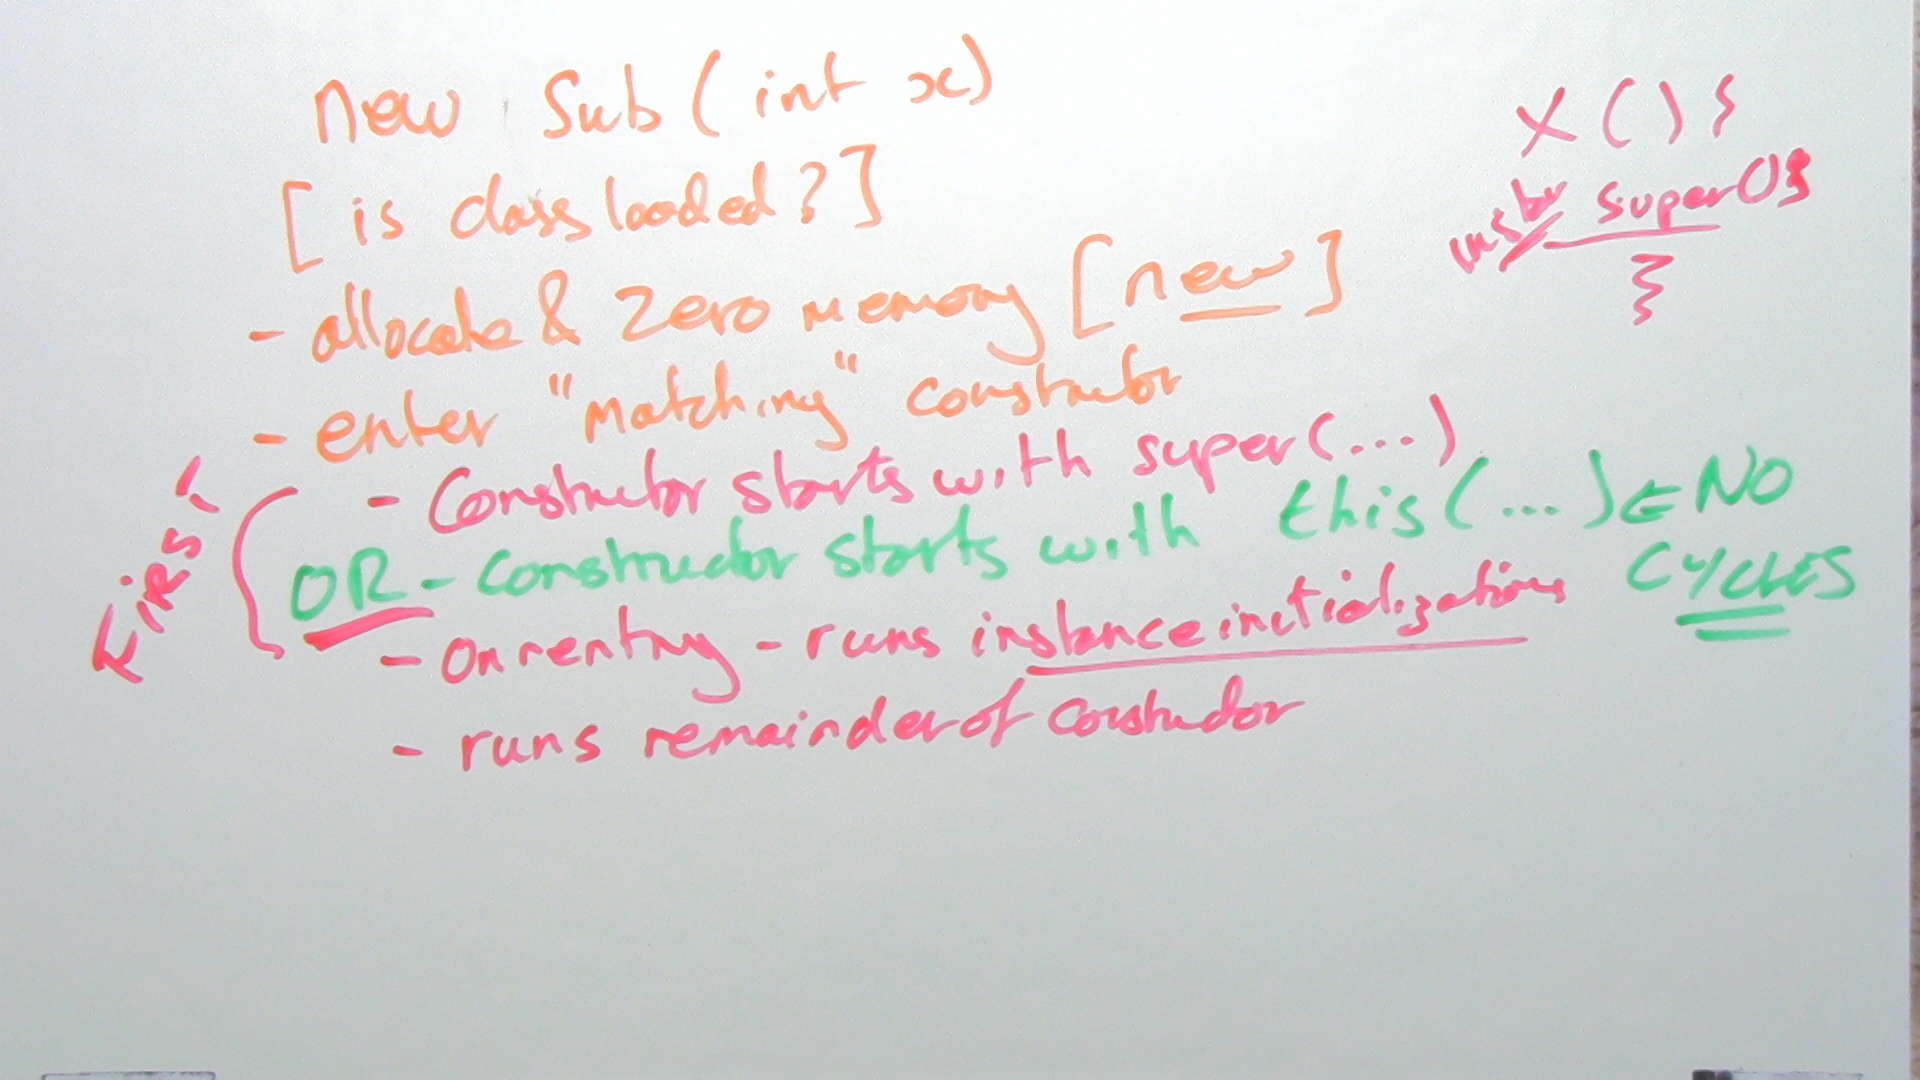 new Sub ( int x)
[ is class loaded? ]
- allocate & zero memory [new]
- enter "matching" constructor
- Constructor starts with super(...)
OR - constructor starts with this (...) ← NO CYCLES
- On rentry - runs instance initializations
- runs remainder of constructor
FIRST
X () {
super();
}